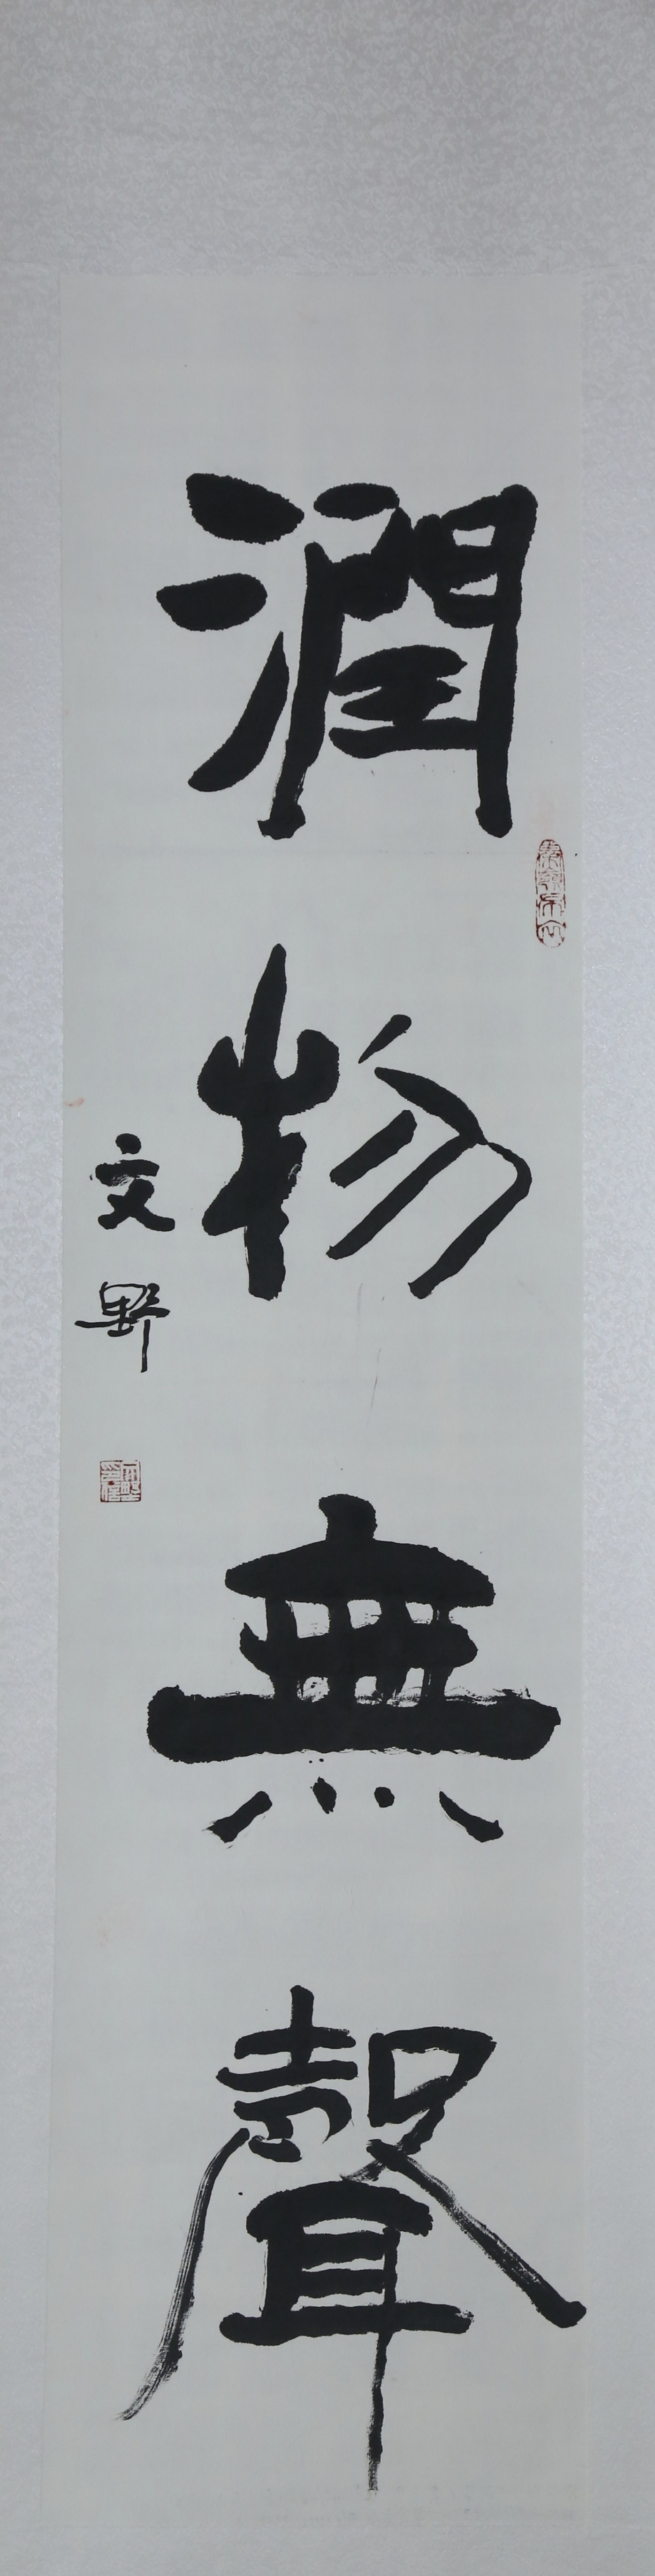 潤物無聲
文野